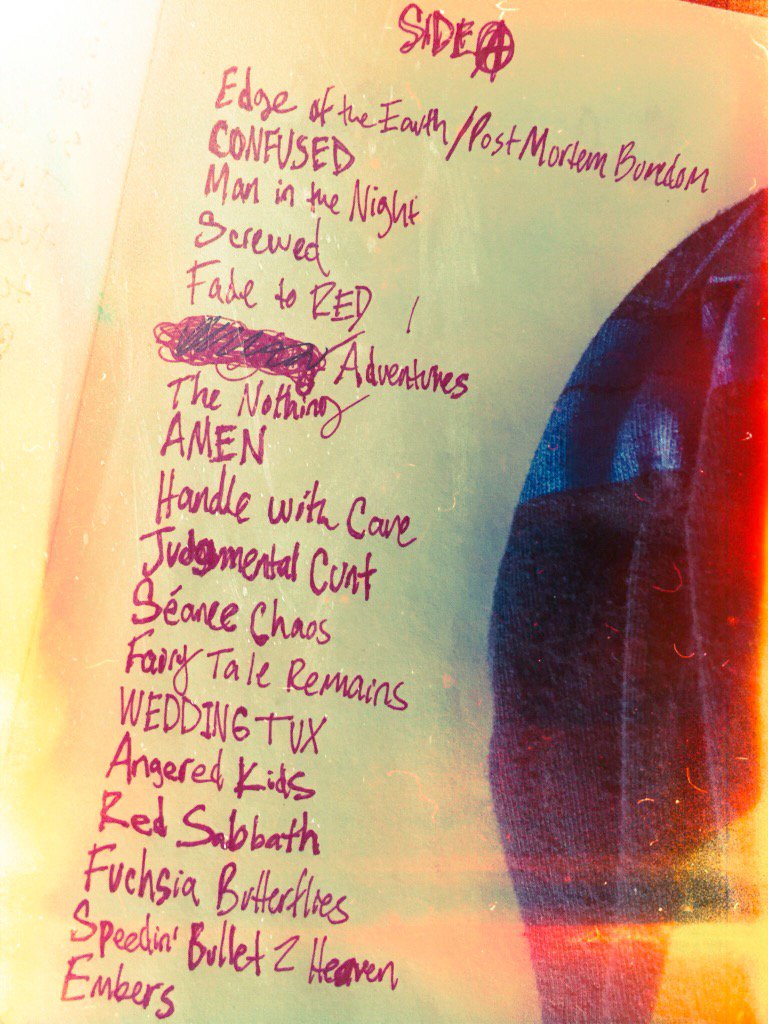 SIDE A
Edge of the Earth/Post Mortem Boredom
CONFUSED
Man in the Night
Screwed
Fade to RED
Adventures
The Nothing
AMEN
Handle with Care
Judgmental Cunt
Séance Chaos
Fairy Tale Remains
WEDDING TUX
Angered Kids
Red Sabbath
Fuchsia Butterflies
Speedin' Bullet 2 Heaven
Embers